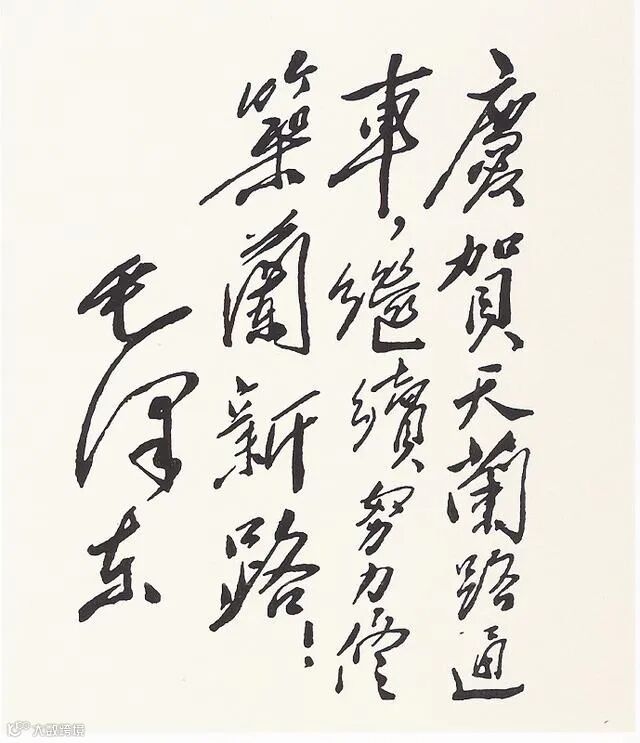 慶賀天蘭路通
車，繼續努力修
築蘭新路！
毛澤东
大数跨境